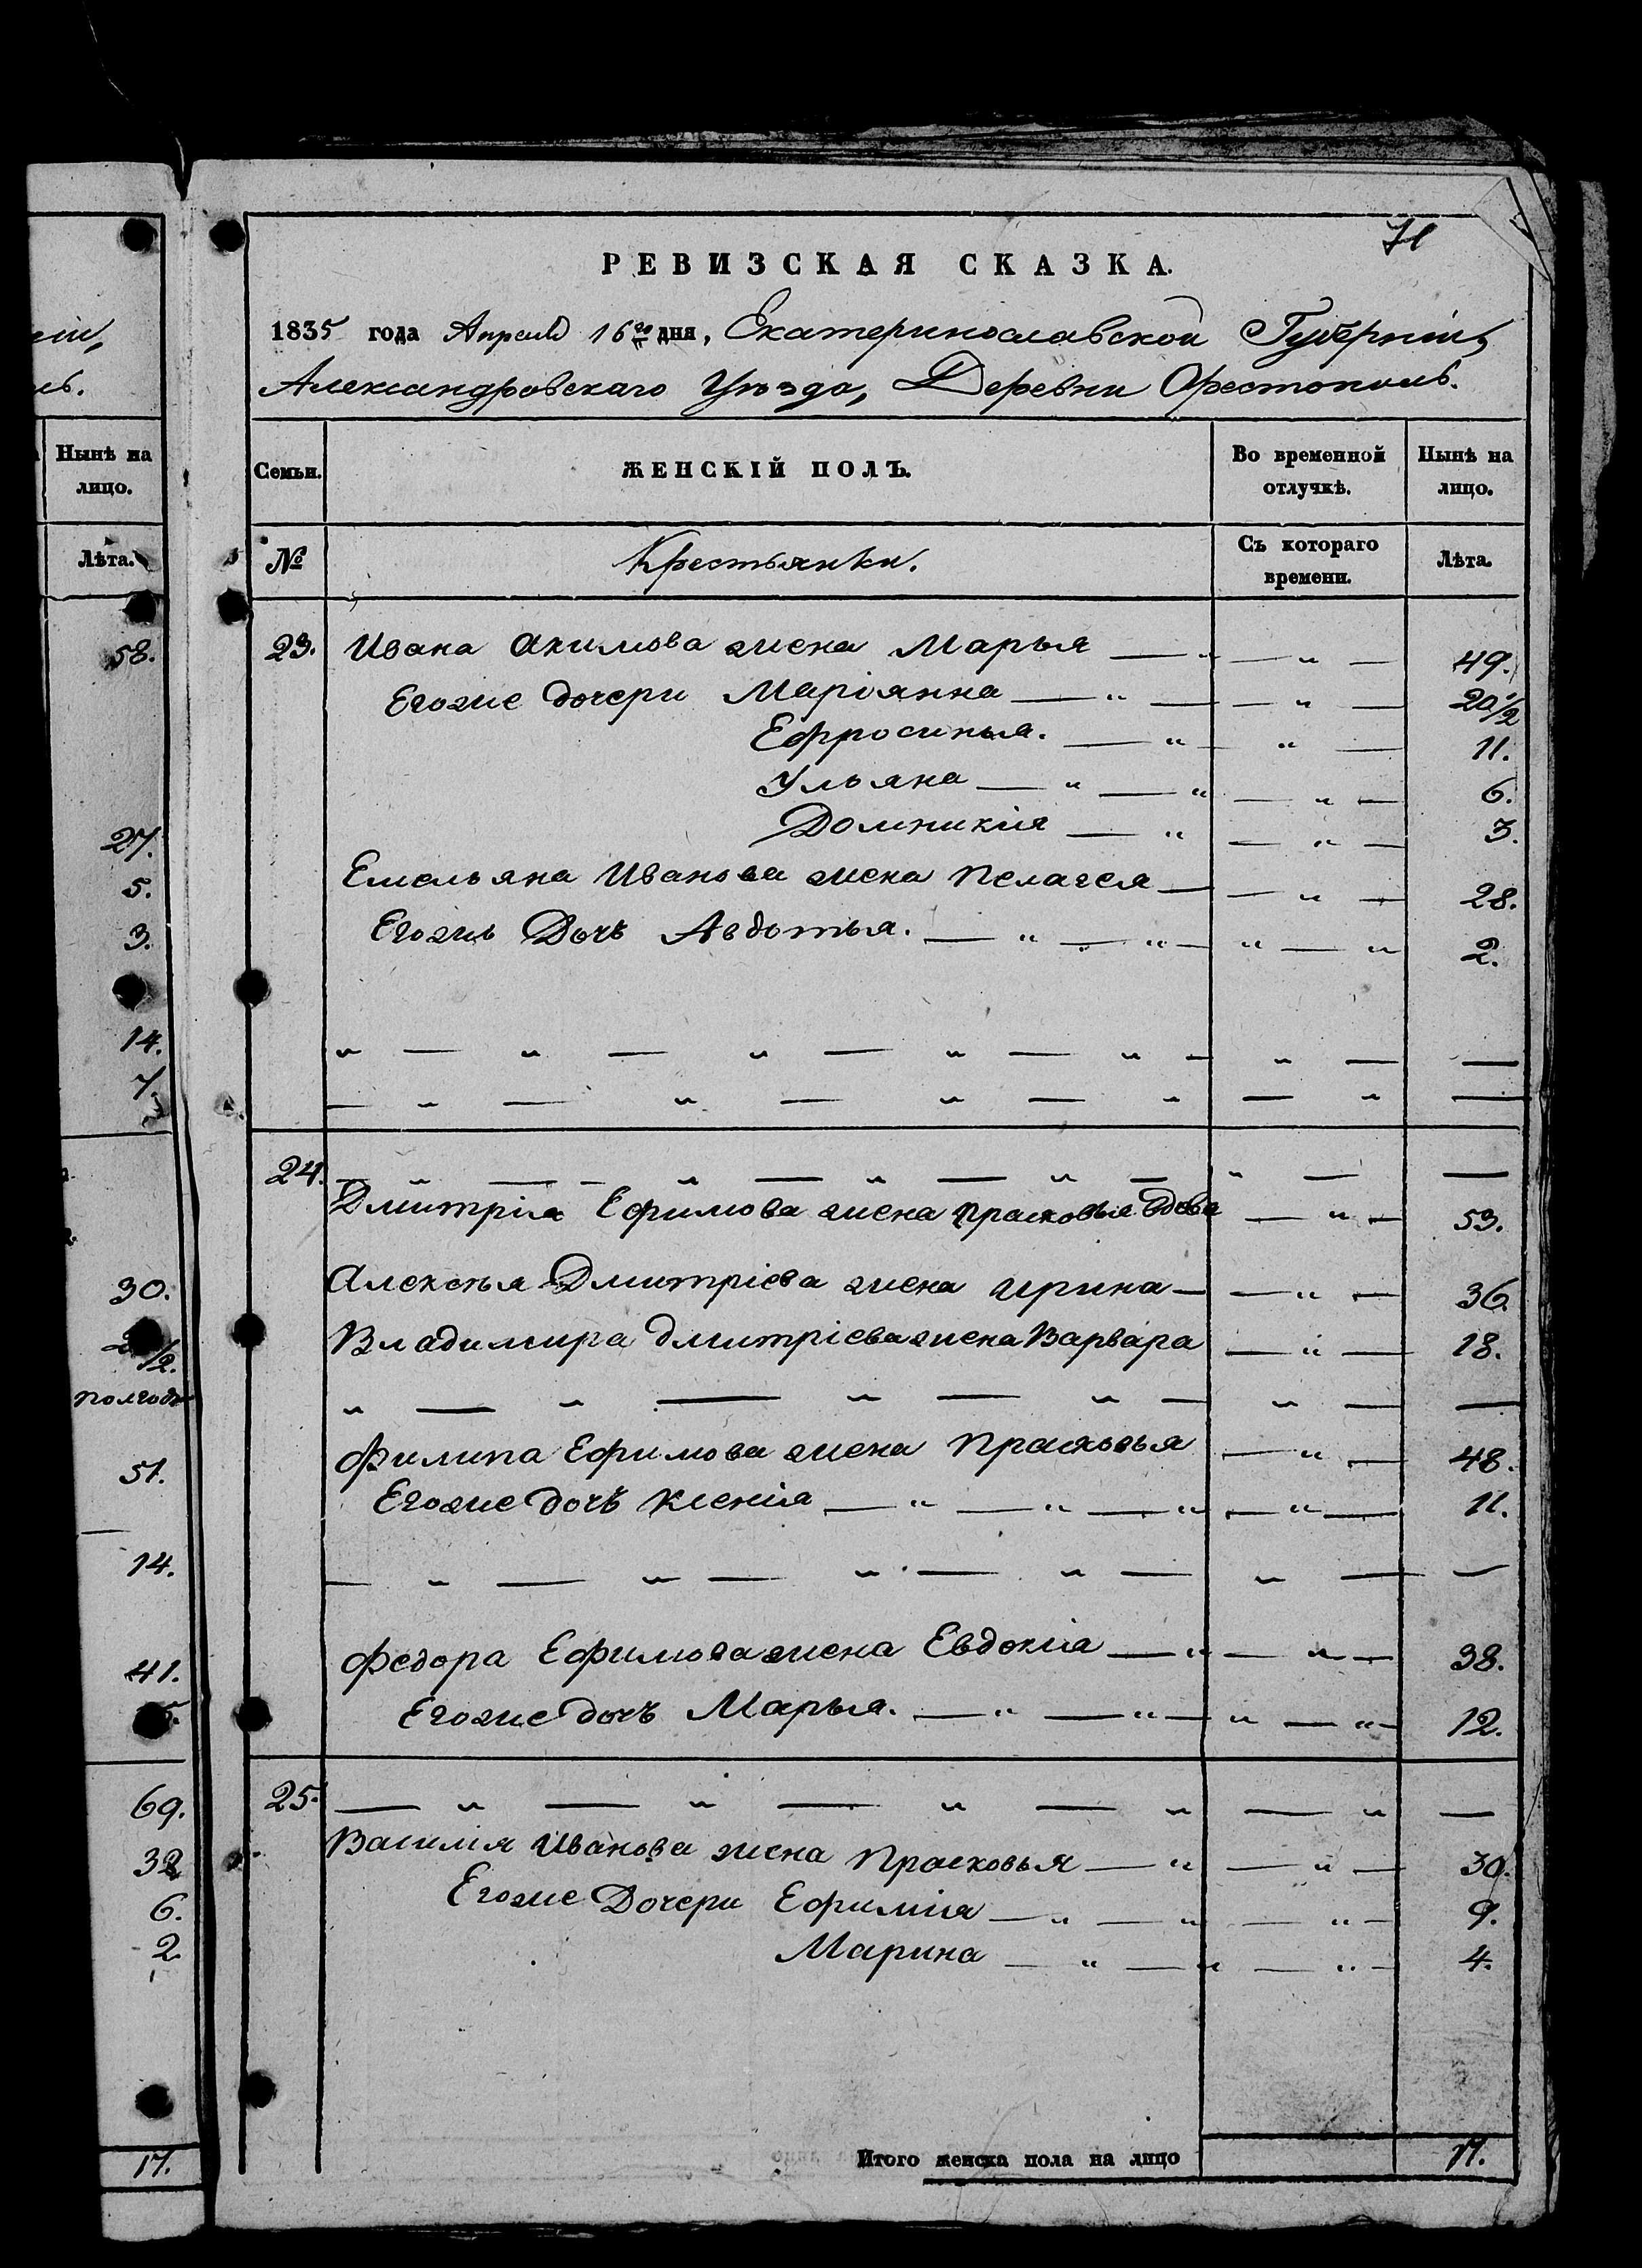 71
РЕВИЗСКАЯ СКАЗКА.
1835 года Апреля 16го дня, Екатеринославской Губерніи,
Александровскаго Уѣзда, Деревни Орестополь.
Семьи. ЖЕНСКІЙ ПОЛЪ. Во временной отлучкѣ. Нынѣ на лицо.
№ Крестьянки. Съ котораго времени. Лѣта.
23. Ивана Акимова жена Марья — " — " — 49.
Егоже дочери Маріянна — " — — " — 20 1/2
Ефросинья. — " — " — 11.
Ульяна — " — " — " — 6.
Домникия — " — " — 3.
Емельяна Иванова жена Пелагея — — " — 28.
Егожь Дочь Авдотья. — " — " — " — " 2.
" — " — " — " — " — " — —
— " — " — " — " — " —
24. — " — — " — " — " — " — —
Дмитрія Ефимова жена Прасковья вдова — " — 53.
Алексѣя Дмитріева жена Ирина — — " — 36.
Владимира Дмитріева жена Варвара — " — 18.
" — " — " — " — " — —
Филипа Ефимова жена Прасковья — " — 48.
Егоже дочь Ксенія — " — " — " — " — 11.
— " — " — " — " — " — —
Федора Ефимова жена Евдокия — " — " — 38.
Егоже дочь Марья. — " — " — " — " — 12.
25. — " — " — " — " — " —
Василія Иванова жена Прасковья — " — " — 30.
Егоже Дочери Ефимия — " — " — " — 9.
Марина — " — " — " — 4.
Итого женска пола на лицо 17.
ніи,
ль.
Нынѣ на
лицо.
Лѣта.
58.
27.
5.
3.
14.
7.
30.
1/2.
полгода
51.
—
14.
41.
5.
69.
32
6.
2.
17.